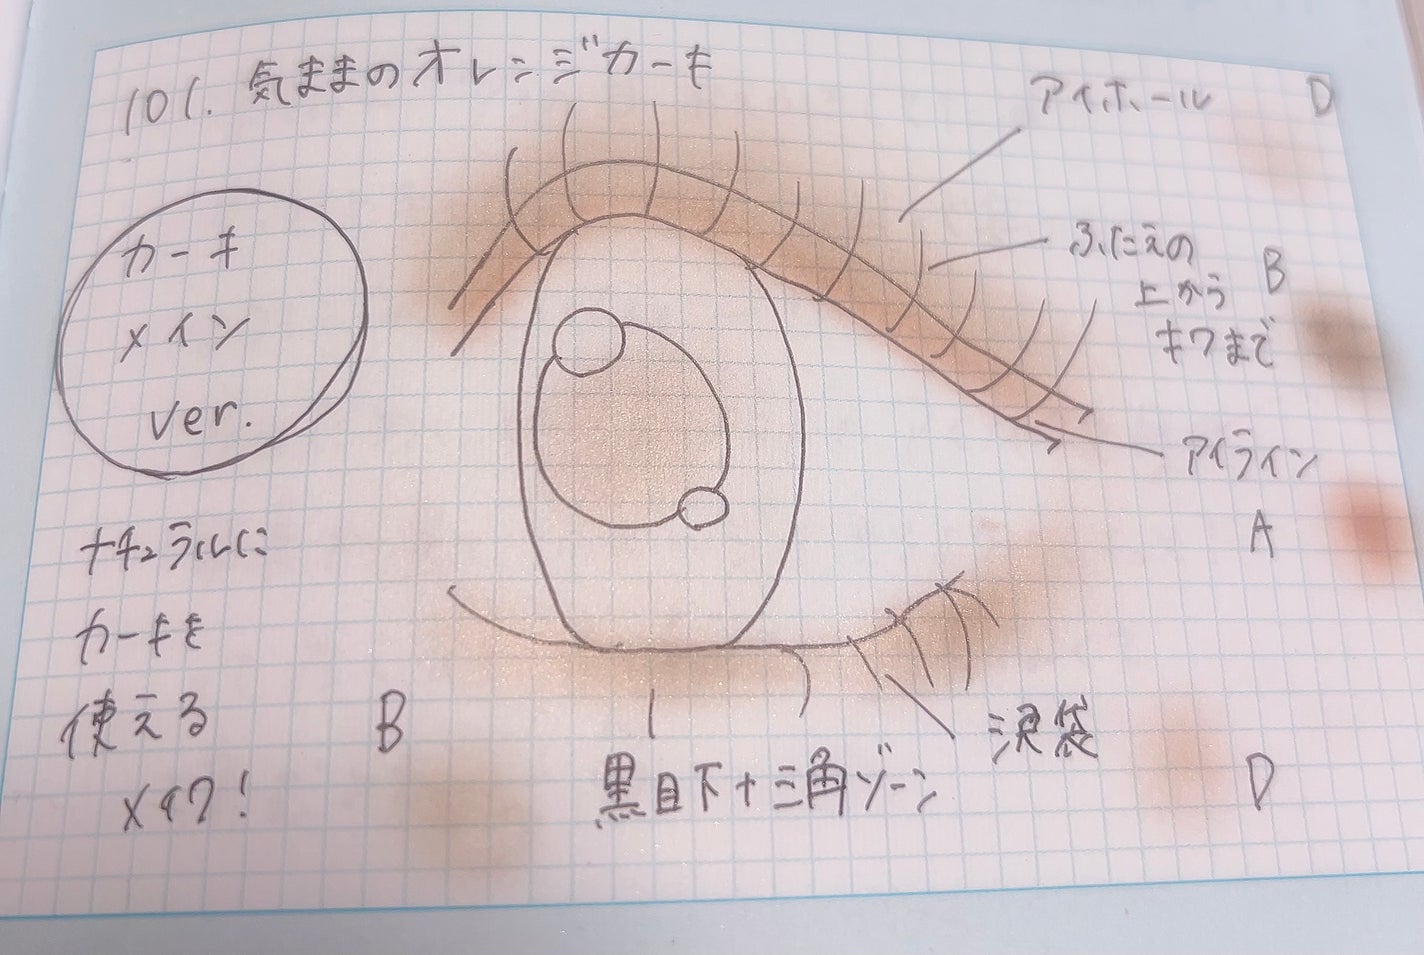 101. 気ままのオレンジカーキ
アイホール D
カーキ
メイン
ver.
ふたえの
上から
キワまで
B
アイライン
A
ナチュラルに
カーキを
使える
メイク!
B
黒目下+三角ゾーン
涙袋
D